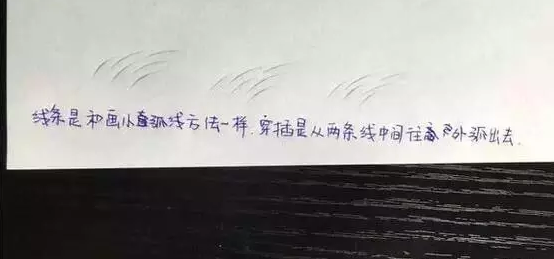 线条是和画小弧线方法一样.穿插是从两条线中间往外弧出去.